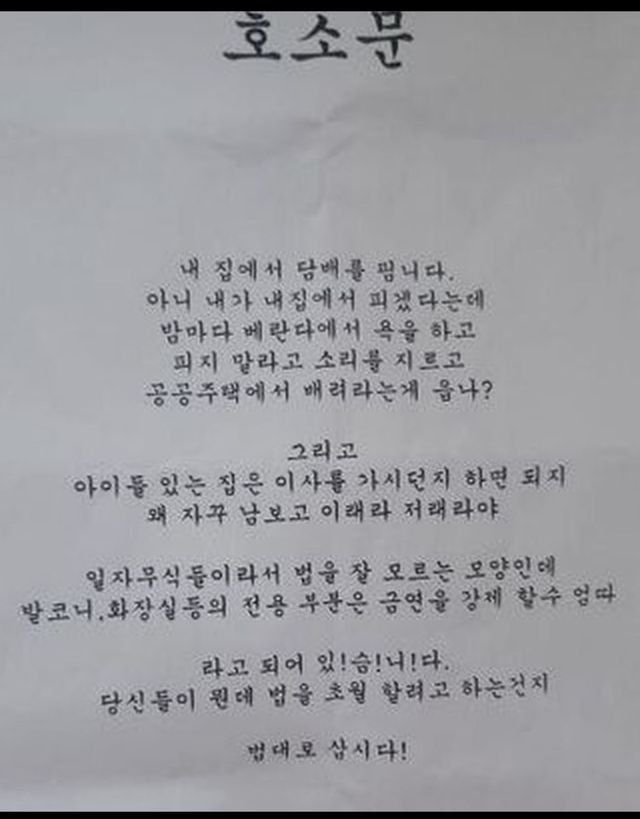 호소문
내 집에서 담배를 핍니다.
아니 내가 내집에서 피겠다는데
밤마다 베란다에서 욕을 하고
피지 말라고 소리를 지르고
공공주택에서 배려라는게 읍나?
그리고
아이들 있는 집은 이사를 가시던지 하면 되지
왜 자꾸 남보고 이래라 저래라야
일자무식들이라서 법을 잘 모르는 모양인데
발코니,화장실등의 전용 부분은 금연을 강제 할수 엄따
라고 되어 있!습!니!다.
당신들이 뭔데 법을 초월 할려고 하는건지
법대로 삽시다!